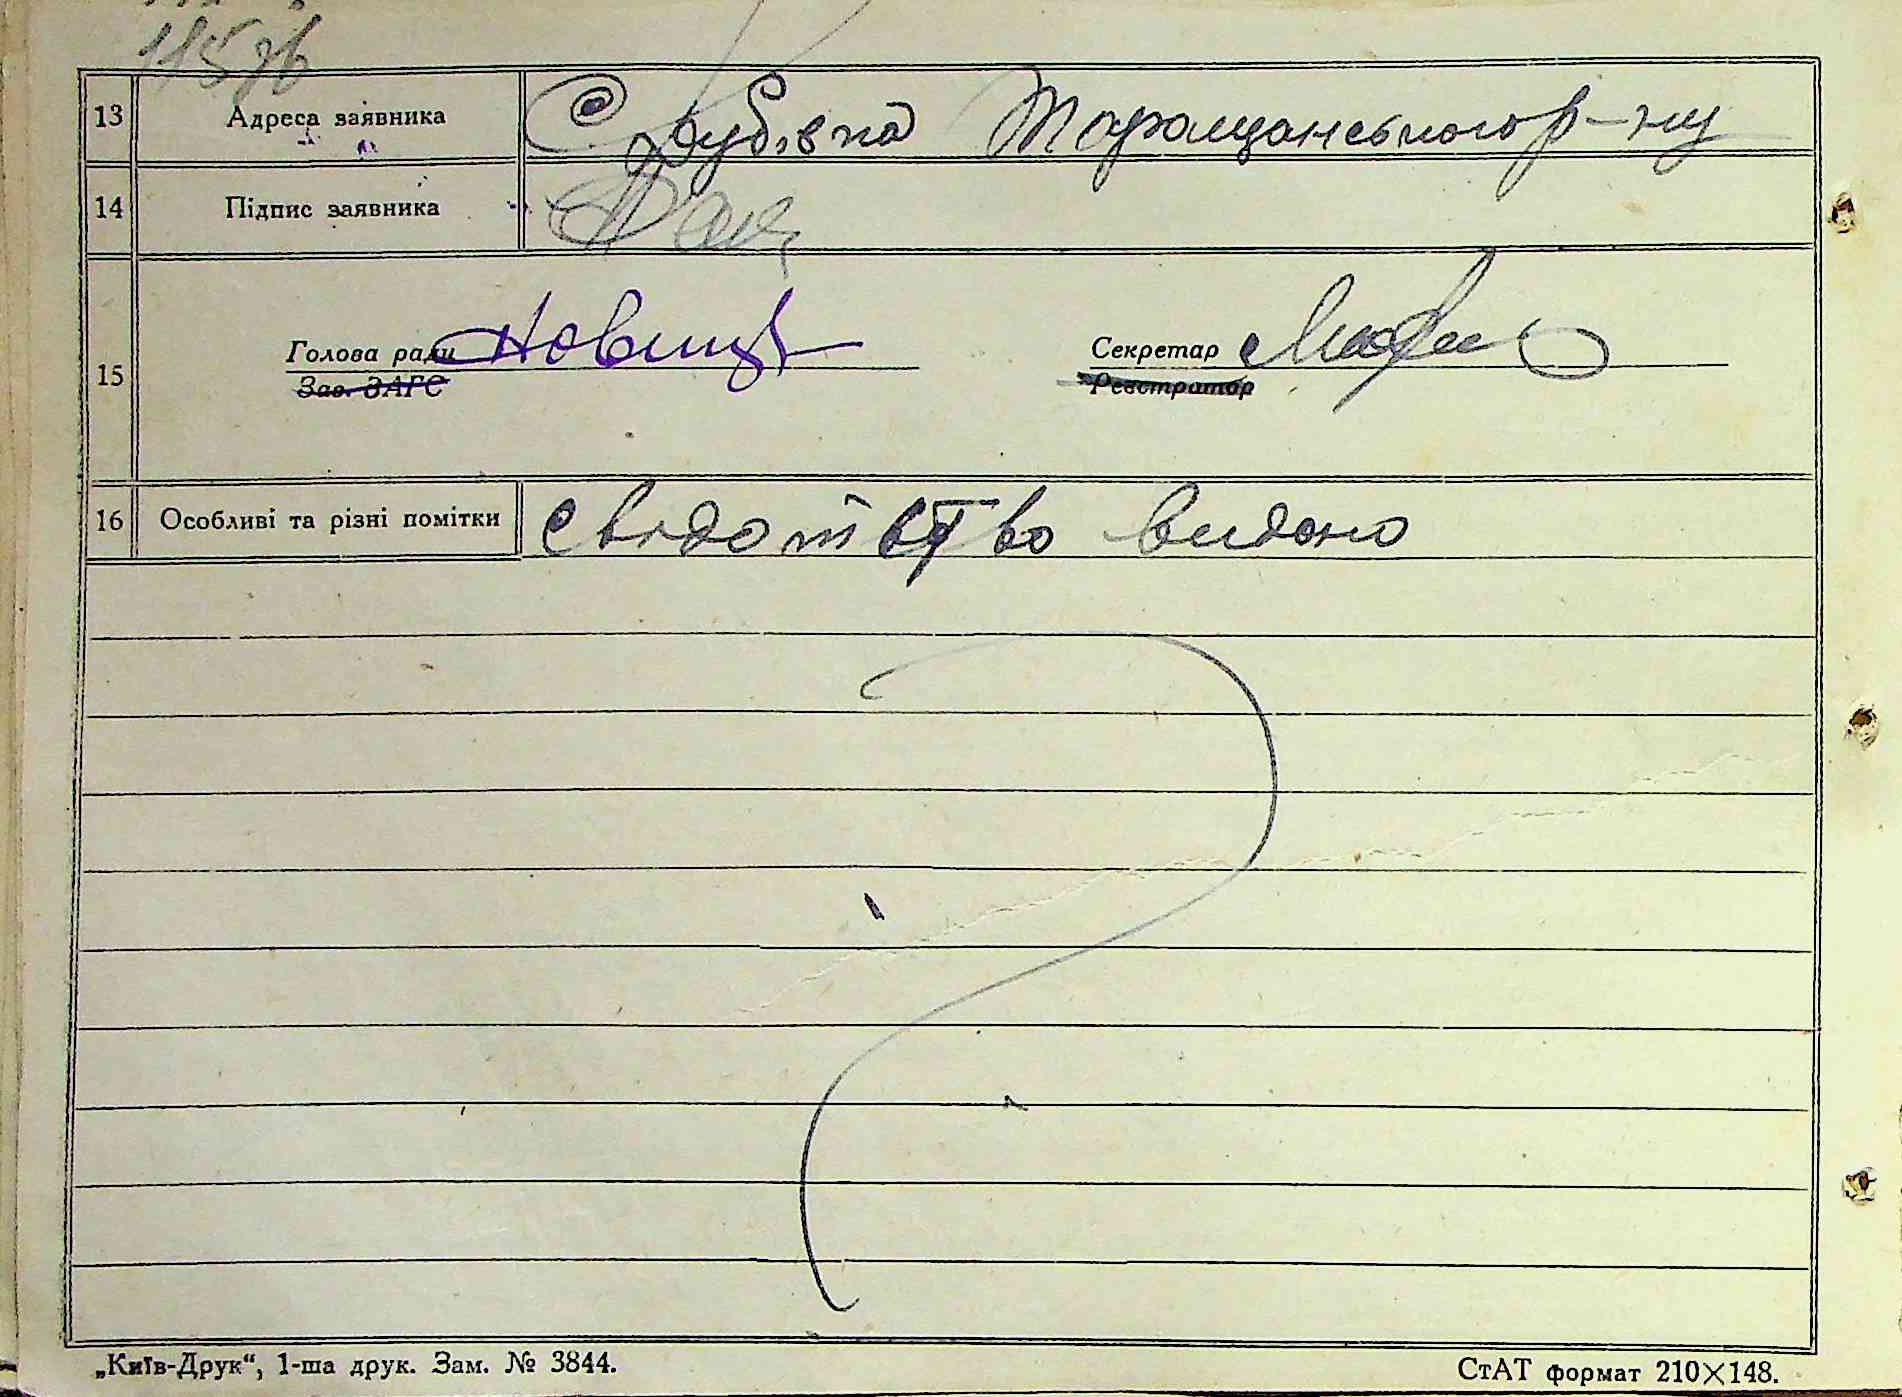 115зв
13 Адреса заявника С Лубівка Таращанського р-ну
14 Підпис заявника
15 Голова ради Новиц Секретар
Зав. ЗАГС Реєстратор
16 Особливі та різні помітки свідотвство видано
„Київ-Друк“, 1-ша друк. Зам. № 3844. СтАТ формат 210×148.